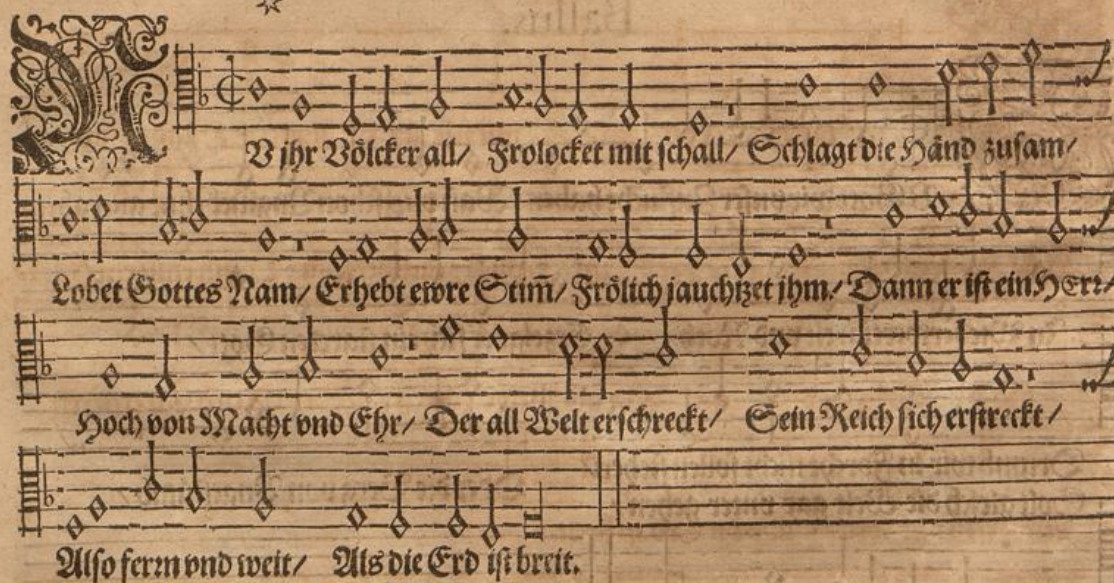 NV jhr Völcker all/ Frolocket mit schall/ Schlagt die Händ zusam/
Lobet Gottes Nam/ Erhebt ewre Stim̃/ Frölich jauchtzet jhm/ Dann er ist ein HErr/
Hoch von Macht vnd Ehr/ Der all Welt erschreckt/ Sein Reich sich erstreckt/
Also ferrn vnd weit/ Als die Erd ist breit.